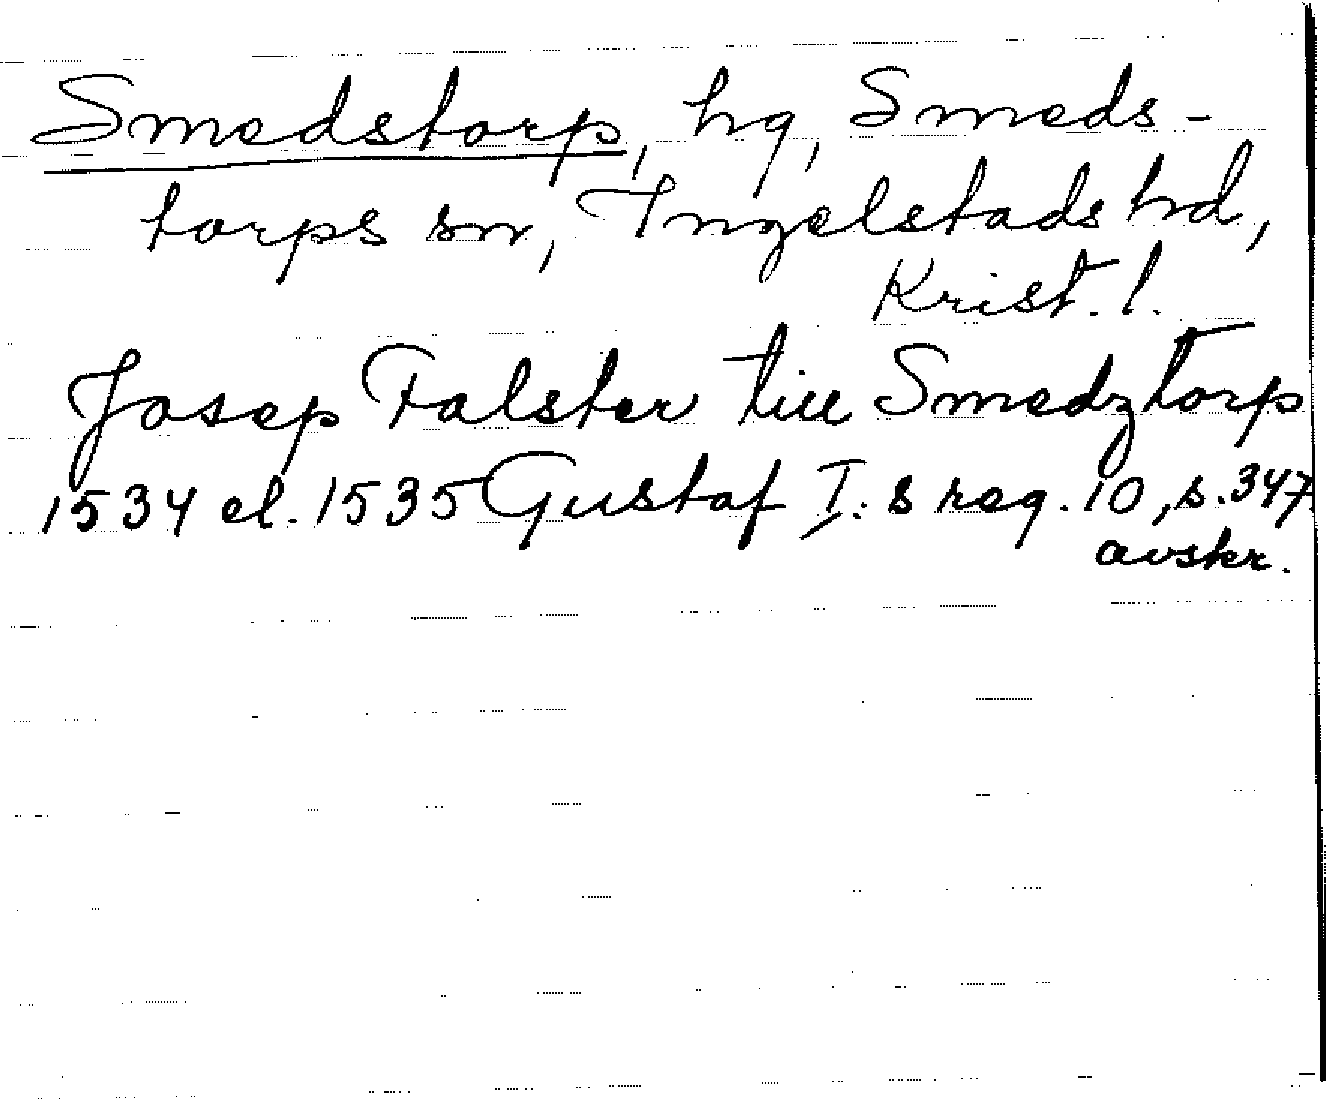 Smedstorp, hg, Smeds-
torps sn, Ingelstads hd,
Krist. l.
Josep Falster till Smedztorp
1534 el. 1535 Gustaf I:s reg. 10, s. 347
avskr.